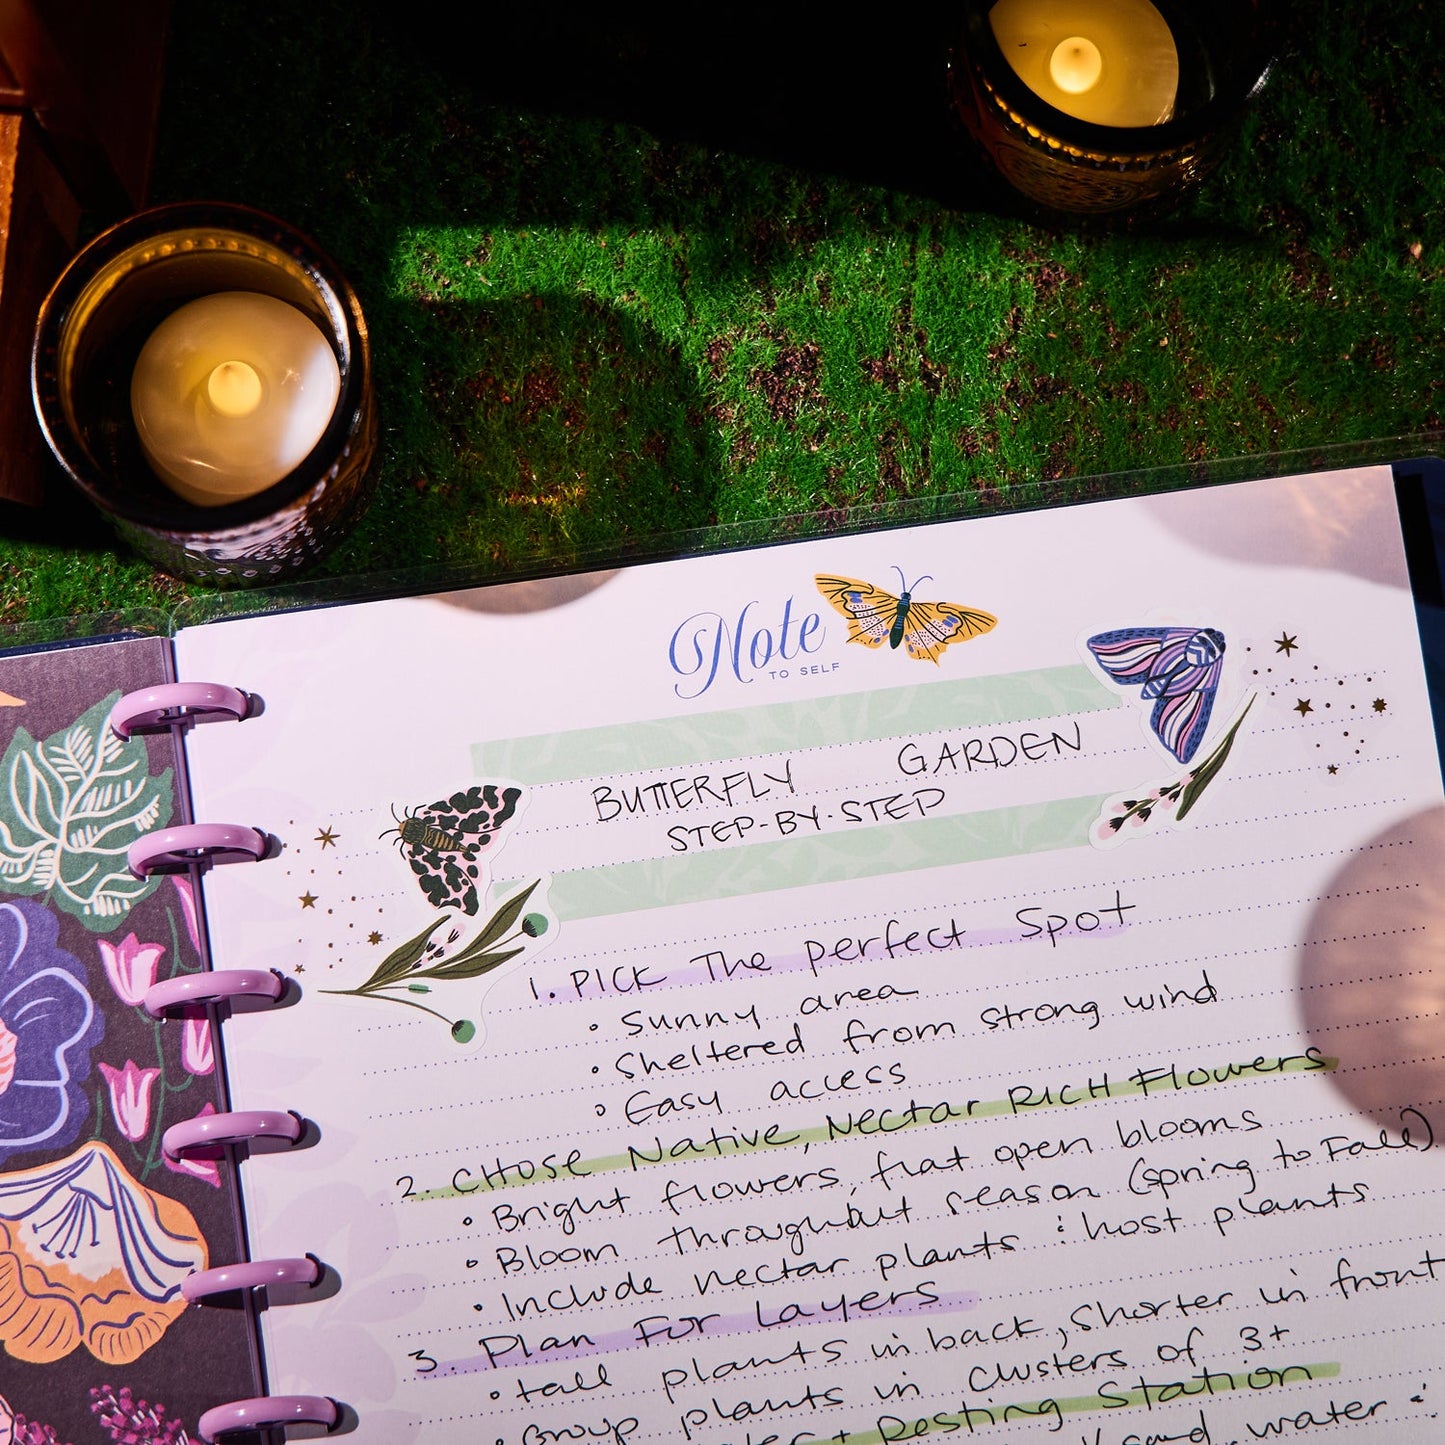 Note
TO SELF
BUTTERFLY GARDEN
STEP-BY-STEP
1. PICK The perfect Spot
• Sunny area
• Sheltered from strong wind
• Easy access
2. CHOSE Native, Nectar RICH Flowers
• Bright flowers, flat open blooms
• Bloom throughout season (spring to Fall)
• Include nectar plants & host plants
3. Plan For Layers
• tall plants in back, shorter in front
• Group plants in clusters of 3+
+ Resting Station
sand, water &